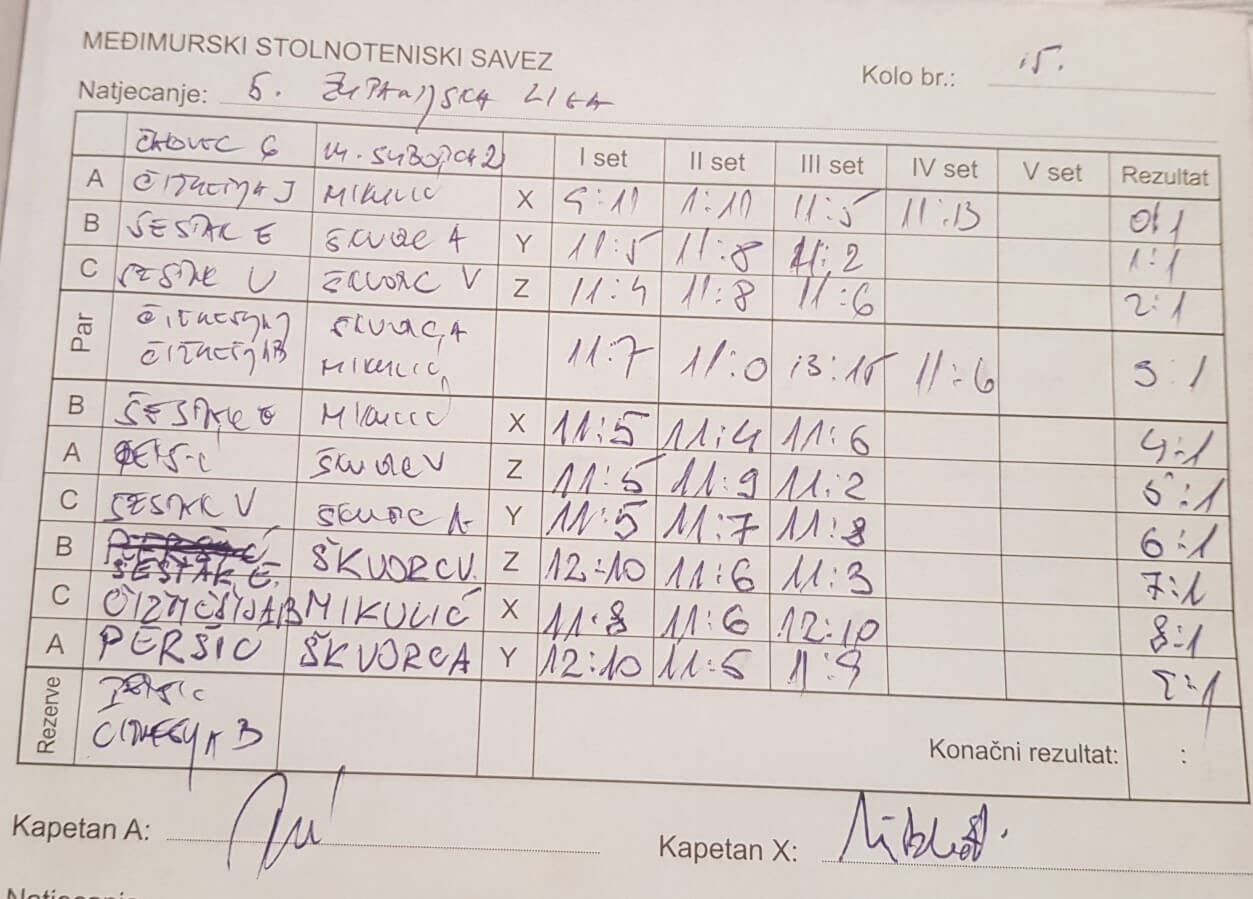 MEĐIMURSKI STOLNOTENISKI SAVEZ
Kolo br.: 15.
Natjecanje: 5. ŽUPANIJSKA LIGA
ČAKOVEC 6 M. SUBOTICA 2 I set II set III set IV set V set Rezultat
A ČIZMEŠIJA J MIKULIĆ X 9:11 1:11 11:5 11:13 0:1
B ŠESTAK E ŠKVORC A Y 11:5 11:8 11:2 1:1
C ŠESTAK V ŠKVORC V Z 11:4 11:8 11:6 2:1
Par ČIZMEŠIJA J ŠKVORC A 11:7 11:0 13:15 11:6 3:1
ČIZMEŠIJA B MIKULIĆ
B ŠESTAK E MIKULIĆ X 11:5 11:4 11:6 4:1
A PERŠIĆ ŠKVORC V Z 11:5 11:9 11:2 5:1
C ŠESTAK V ŠKVORC A Y 11:5 11:7 11:8 6:1
B ŠESTAK E. ŠKVORC V. Z 12:10 11:6 11:3 7:1
C ČIZMEŠIJA B MIKULIĆ X 11:8 11:6 12:10 8:1
A PERŠIĆ ŠKVORC A Y 12:10 11:5 11:9 9:1
Rezerve PERŠIĆ
ČIZMEŠIJA B
Konačni rezultat: :
Kapetan A:
Kapetan X: